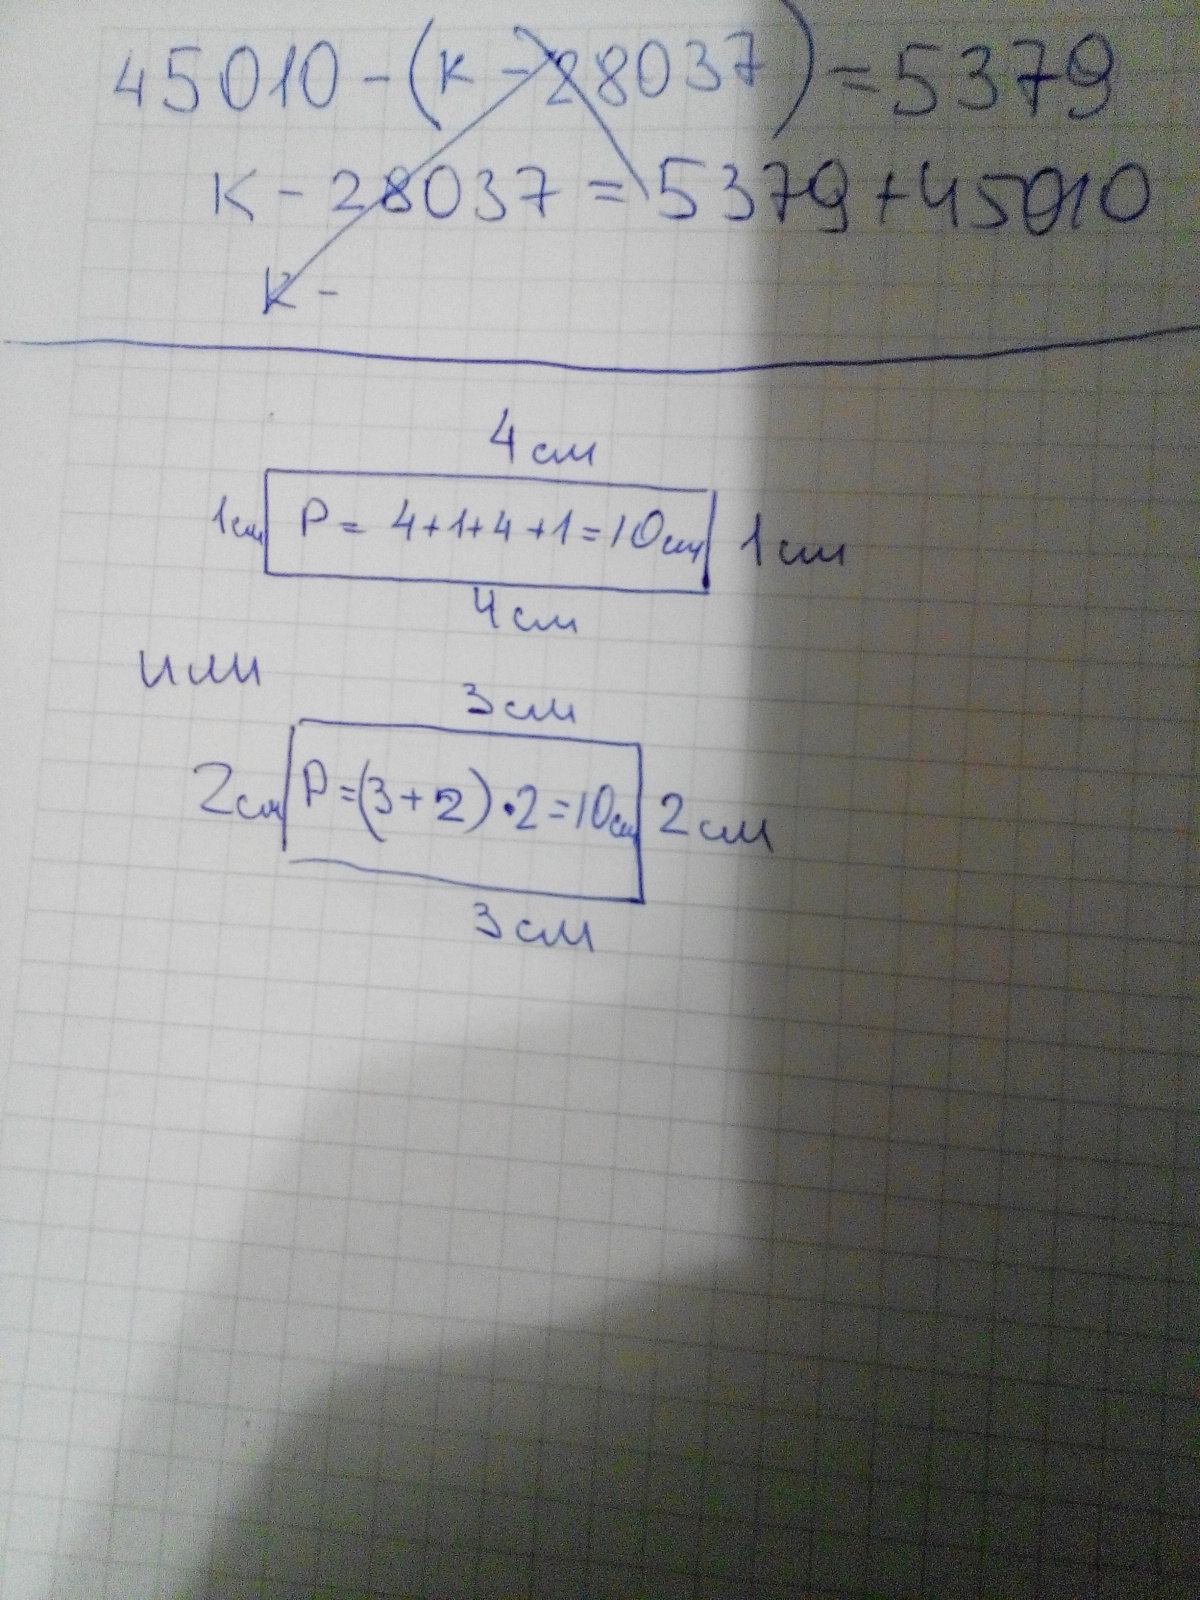 45010 - (к - 28037) = 5379
к - 28037 = 5379 + 45010
к -
4 см
1 см P = 4+1+4+1=10 см 1 см
4 см
или
3 см
2 см P=(3+2)·2=10 см 2 см
3 см